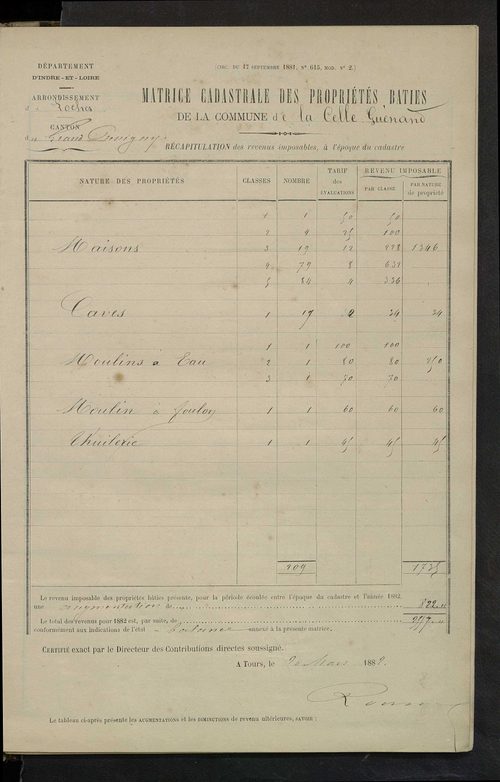 DÉPARTEMENT
D'INDRE-ET-LOIRE
ARRONDISSEMENT
de Loches
CANTON
du Grand Pressigny
(CIRC. DU 17 SEPTEMBRE 1881, N° 615, MOD. N° 2.)
MATRICE CADASTRALE DES PROPRIÉTÉS BATIES
DE LA COMMUNE de la Celle Guenand
RÉCAPITULATION des revenus imposables, à l'époque du cadastre
NATURE DES PROPRIÉTÉS CLASSES NOMBRE TARIF des ÉVALUATIONS REVENU IMPOSABLE
PAR CLASSE PAR NATURE de propriété
1 1 50 50
2 4 25 100
Maisons 3 19 12 228 1346
4 79 8 632
5 84 4 336
Caves 1 17 2 34 34
1 1 100 100
Moulins à Eau 2 1 80 80 250
3 1 70 70
Moulin à foulon 1 1 60 60 60
Thuilerie 1 1 45 45 45
209 1735
Le revenu imposable des propriétés bâties présente, pour la période écoulée entre l'époque du cadastre et l'année 1882,
une augmentation de 822
Le total des revenus pour 1882 est, par suite, de
conformément aux indications de l'état balance annexé à la présente matrice.
CERTIFIÉ exact par le Directeur des Contributions directes soussigné.
A TOURS, le Mars 1882.
Le tableau ci-après présente les AUGMENTATIONS et les DIMINUTIONS de revenu ultérieures, SAVOIR :